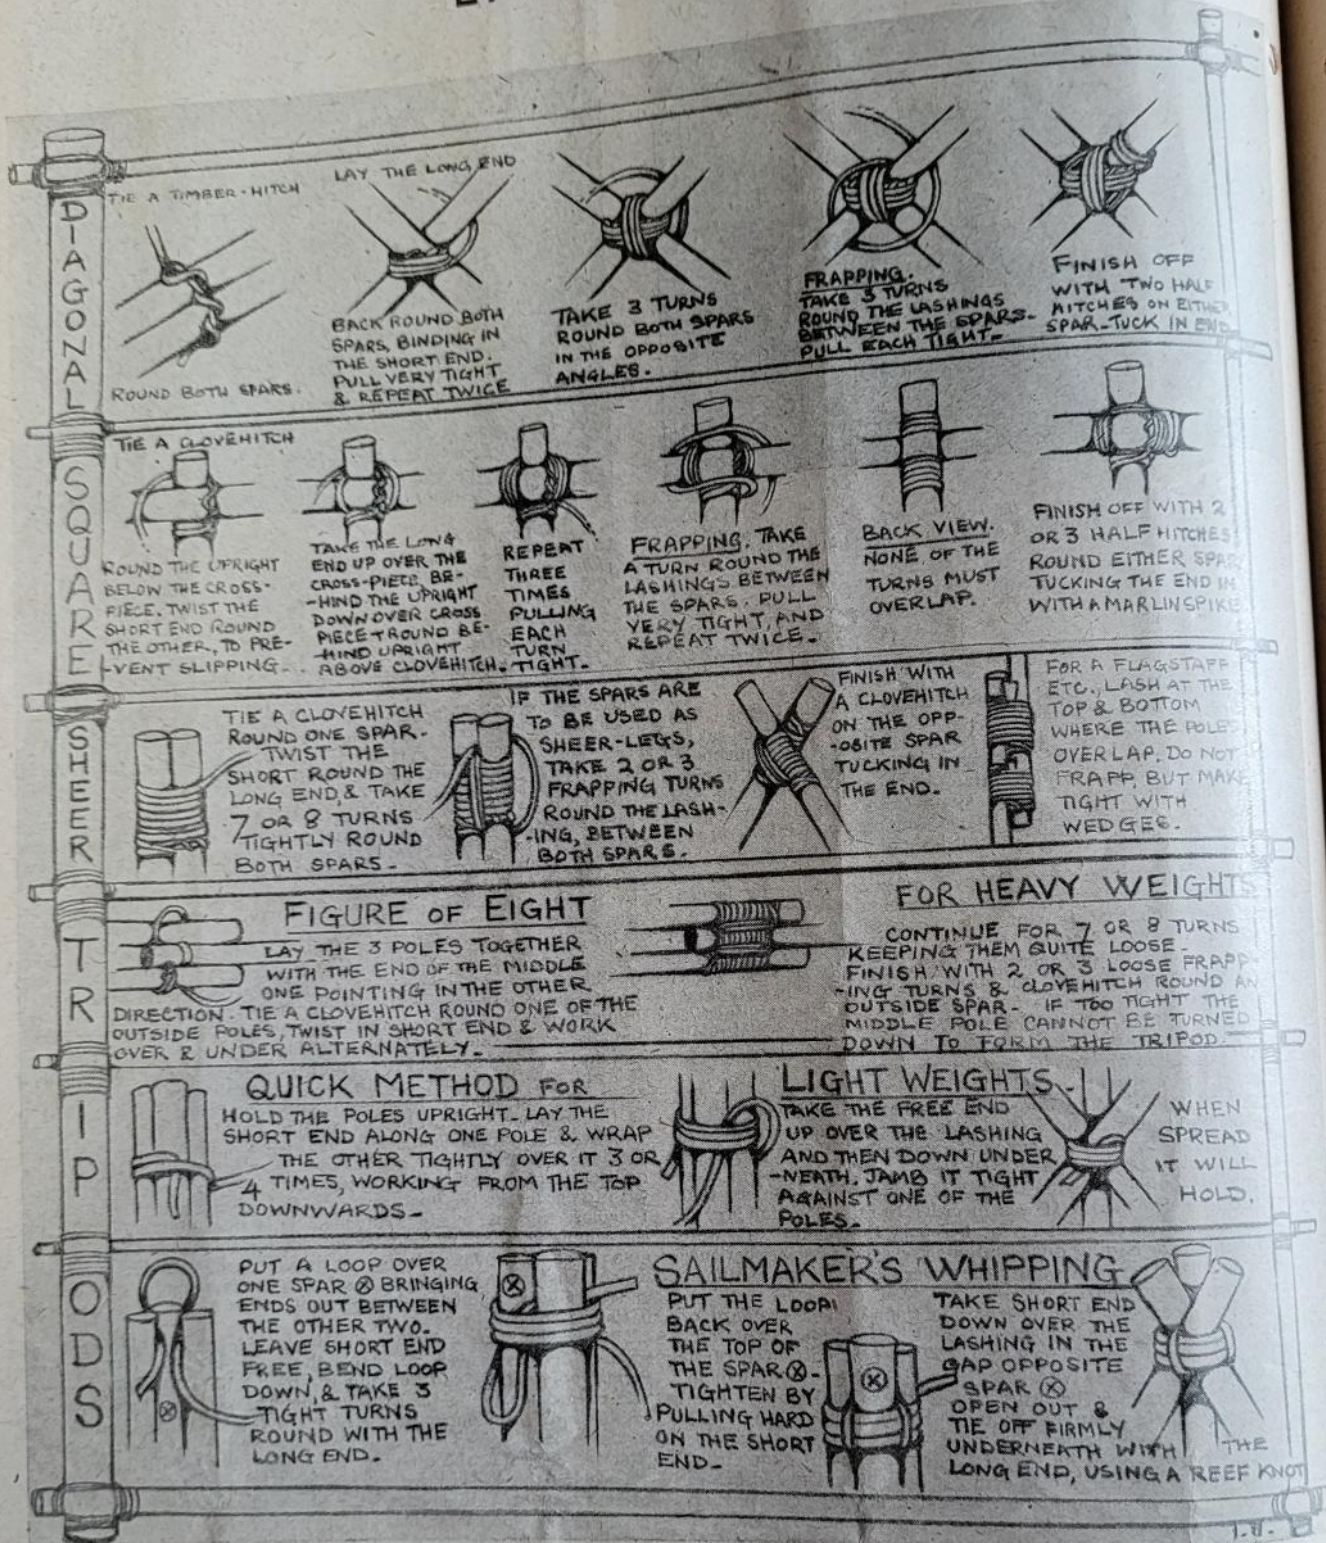 DIAGONAL
TIE A TIMBER-HITCH
ROUND BOTH SPARS.
LAY THE LONG END
BACK ROUND BOTH
SPARS, BINDING IN
THE SHORT END.
PULL VERY TIGHT
& REPEAT TWICE
TAKE 3 TURNS
ROUND BOTH SPARS
IN THE OPPOSITE
ANGLES.
FRAPPING.
TAKE 3 TURNS
ROUND THE LASHINGS
BETWEEN THE SPARS-
PULL EACH TIGHT-
FINISH OFF
WITH TWO HALF
HITCHES ON EITHER
SPAR-TUCK IN END
SQUARE
TIE A CLOVEHITCH
ROUND THE UPRIGHT
BELOW THE CROSS-
PIECE. TWIST THE
SHORT END ROUND
THE OTHER, TO PRE-
-VENT SLIPPING-
TAKE THE LONG
END UP OVER THE
CROSS-PIECE BE-
-HIND THE UPRIGHT
DOWN OVER CROSS
PIECE & ROUND BE-
-HIND UPRIGHT
ABOVE CLOVEHITCH-
REPEAT
THREE
TIMES
PULLING
EACH
TURN
TIGHT-
FRAPPING. TAKE
A TURN ROUND THE
LASHINGS BETWEEN
THE SPARS. PULL
VERY TIGHT, AND
REPEAT TWICE-
BACK VIEW.
NONE OF THE
TURNS MUST
OVERLAP.
FINISH OFF WITH 2
OR 3 HALF HITCHES
ROUND EITHER SPAR
TUCKING THE END IN
WITH A MARLINSPIKE
SHEER
TIE A CLOVEHITCH
ROUND ONE SPAR-
TWIST THE
SHORT ROUND THE
LONG END, & TAKE
7 OR 8 TURNS
TIGHTLY ROUND
BOTH SPARS-
IF THE SPARS ARE
TO BE USED AS
SHEER-LEGS,
TAKE 2 OR 3
FRAPPING TURNS
ROUND THE LASH-
-ING, BETWEEN
BOTH SPARS.
FINISH WITH
A CLOVEHITCH
ON THE OPP-
-OSITE SPAR
TUCKING IN
THE END-
FOR A FLAGSTAFF
ETC., LASH AT THE
TOP & BOTTOM
WHERE THE POLES
OVERLAP. DO NOT
FRAPP, BUT MAKE
TIGHT WITH
WEDGES.
TRIPODS
FIGURE OF EIGHT
LAY THE 3 POLES TOGETHER
WITH THE END OF THE MIDDLE
ONE POINTING IN THE OTHER
DIRECTION. TIE A CLOVEHITCH ROUND ONE OF THE
OUTSIDE POLES, TWIST IN SHORT END & WORK
OVER & UNDER ALTERNATELY-
FOR HEAVY WEIGHTS
CONTINUE FOR 7 OR 8 TURNS
KEEPING THEM QUITE LOOSE-
FINISH WITH 2 OR 3 LOOSE FRAPP-
-ING TURNS & CLOVEHITCH ROUND AN
OUTSIDE SPAR- IF TOO TIGHT THE
MIDDLE POLE CANNOT BE TURNED
DOWN TO FORM THE TRIPOD-
QUICK METHOD FOR
HOLD THE POLES UPRIGHT-LAY THE
SHORT END ALONG ONE POLE & WRAP
THE OTHER TIGHTLY OVER IT 3 OR
4 TIMES, WORKING FROM THE TOP
DOWNWARDS-
LIGHT WEIGHTS-
TAKE THE FREE END
UP OVER THE LASHING
AND THEN DOWN UNDER
-NEATH. JAMB IT TIGHT
AGAINST ONE OF THE
POLES-
WHEN
SPREAD
IT WILL
HOLD.
PUT A LOOP OVER
ONE SPAR ⊗ BRINGING
ENDS OUT BETWEEN
THE OTHER TWO.
LEAVE SHORT END
FREE, BEND LOOP
DOWN, & TAKE 3
TIGHT TURNS
ROUND WITH THE
LONG END-
SAILMAKER'S WHIPPING
PUT THE LOOP
BACK OVER
THE TOP OF
THE SPAR ⊗-
TIGHTEN BY
PULLING HARD
ON THE SHORT
END-
TAKE SHORT END
DOWN OVER THE
LASHING IN THE
GAP OPPOSITE
SPAR ⊗
OPEN OUT &
TIE OFF FIRMLY
UNDERNEATH WITH THE
LONG END, USING A REEF KNOT